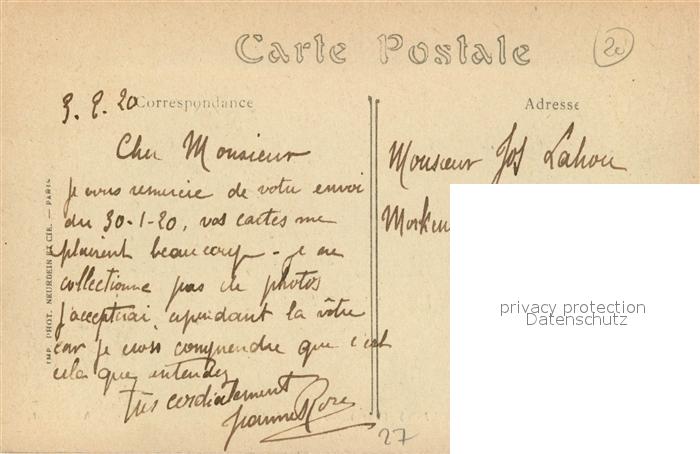 Carte Postale
20
Correspondance
Adresse
Cher Monsieur
Je vous remercie de votre envoi
du 30-1-20, vos cartes me
plaisent beaucoup - je ne
collectionne pas de photos
j'accepterai cependant la vôtre
car je crois comprendre que c'est
cela que entendez
Très cordialement
Monsieur Jos
IMP. PHOT. NEURDEIN ET CIE. — PARIS
privacy protection
Datenschutz
27